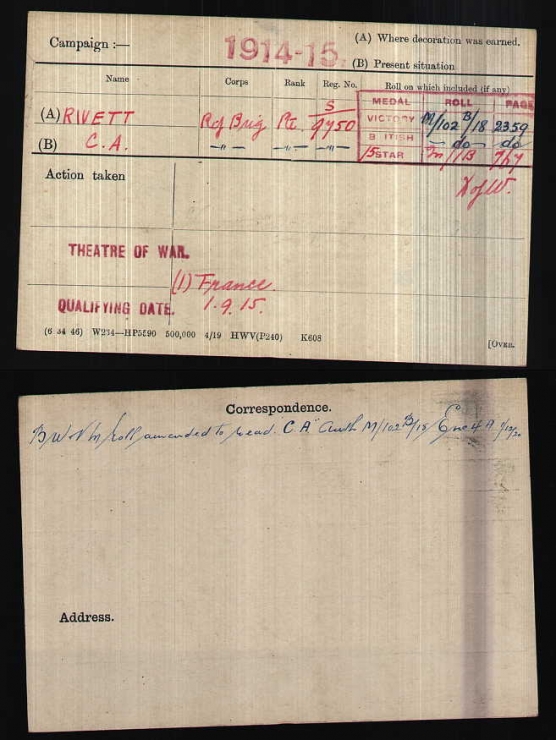 Campaign :— 1914-15. (A) Where decoration was earned.
(B) Present situation
Name Corps Rank Reg. No. Roll on which included (if any)
MEDAL ROLL PAGE
(A) RIVETT Rif Brig Pte S/9750 VICTORY M/102 B/18 2359
(B) C.A. —"— —"— —"— BRITISH — do — do
15 STAR 7/67
Action taken D of W.
THEATRE OF WAR.
(1) France
QUALIFYING DATE. 1.9.15.
(6 34 46) W234—HP5590 500,000 4/19 HWV(P240) K608
[OVER.
Correspondence.
B W & V M roll amended to read "C.A" Auth M/102 B/18/ Enc 4 A
Address.